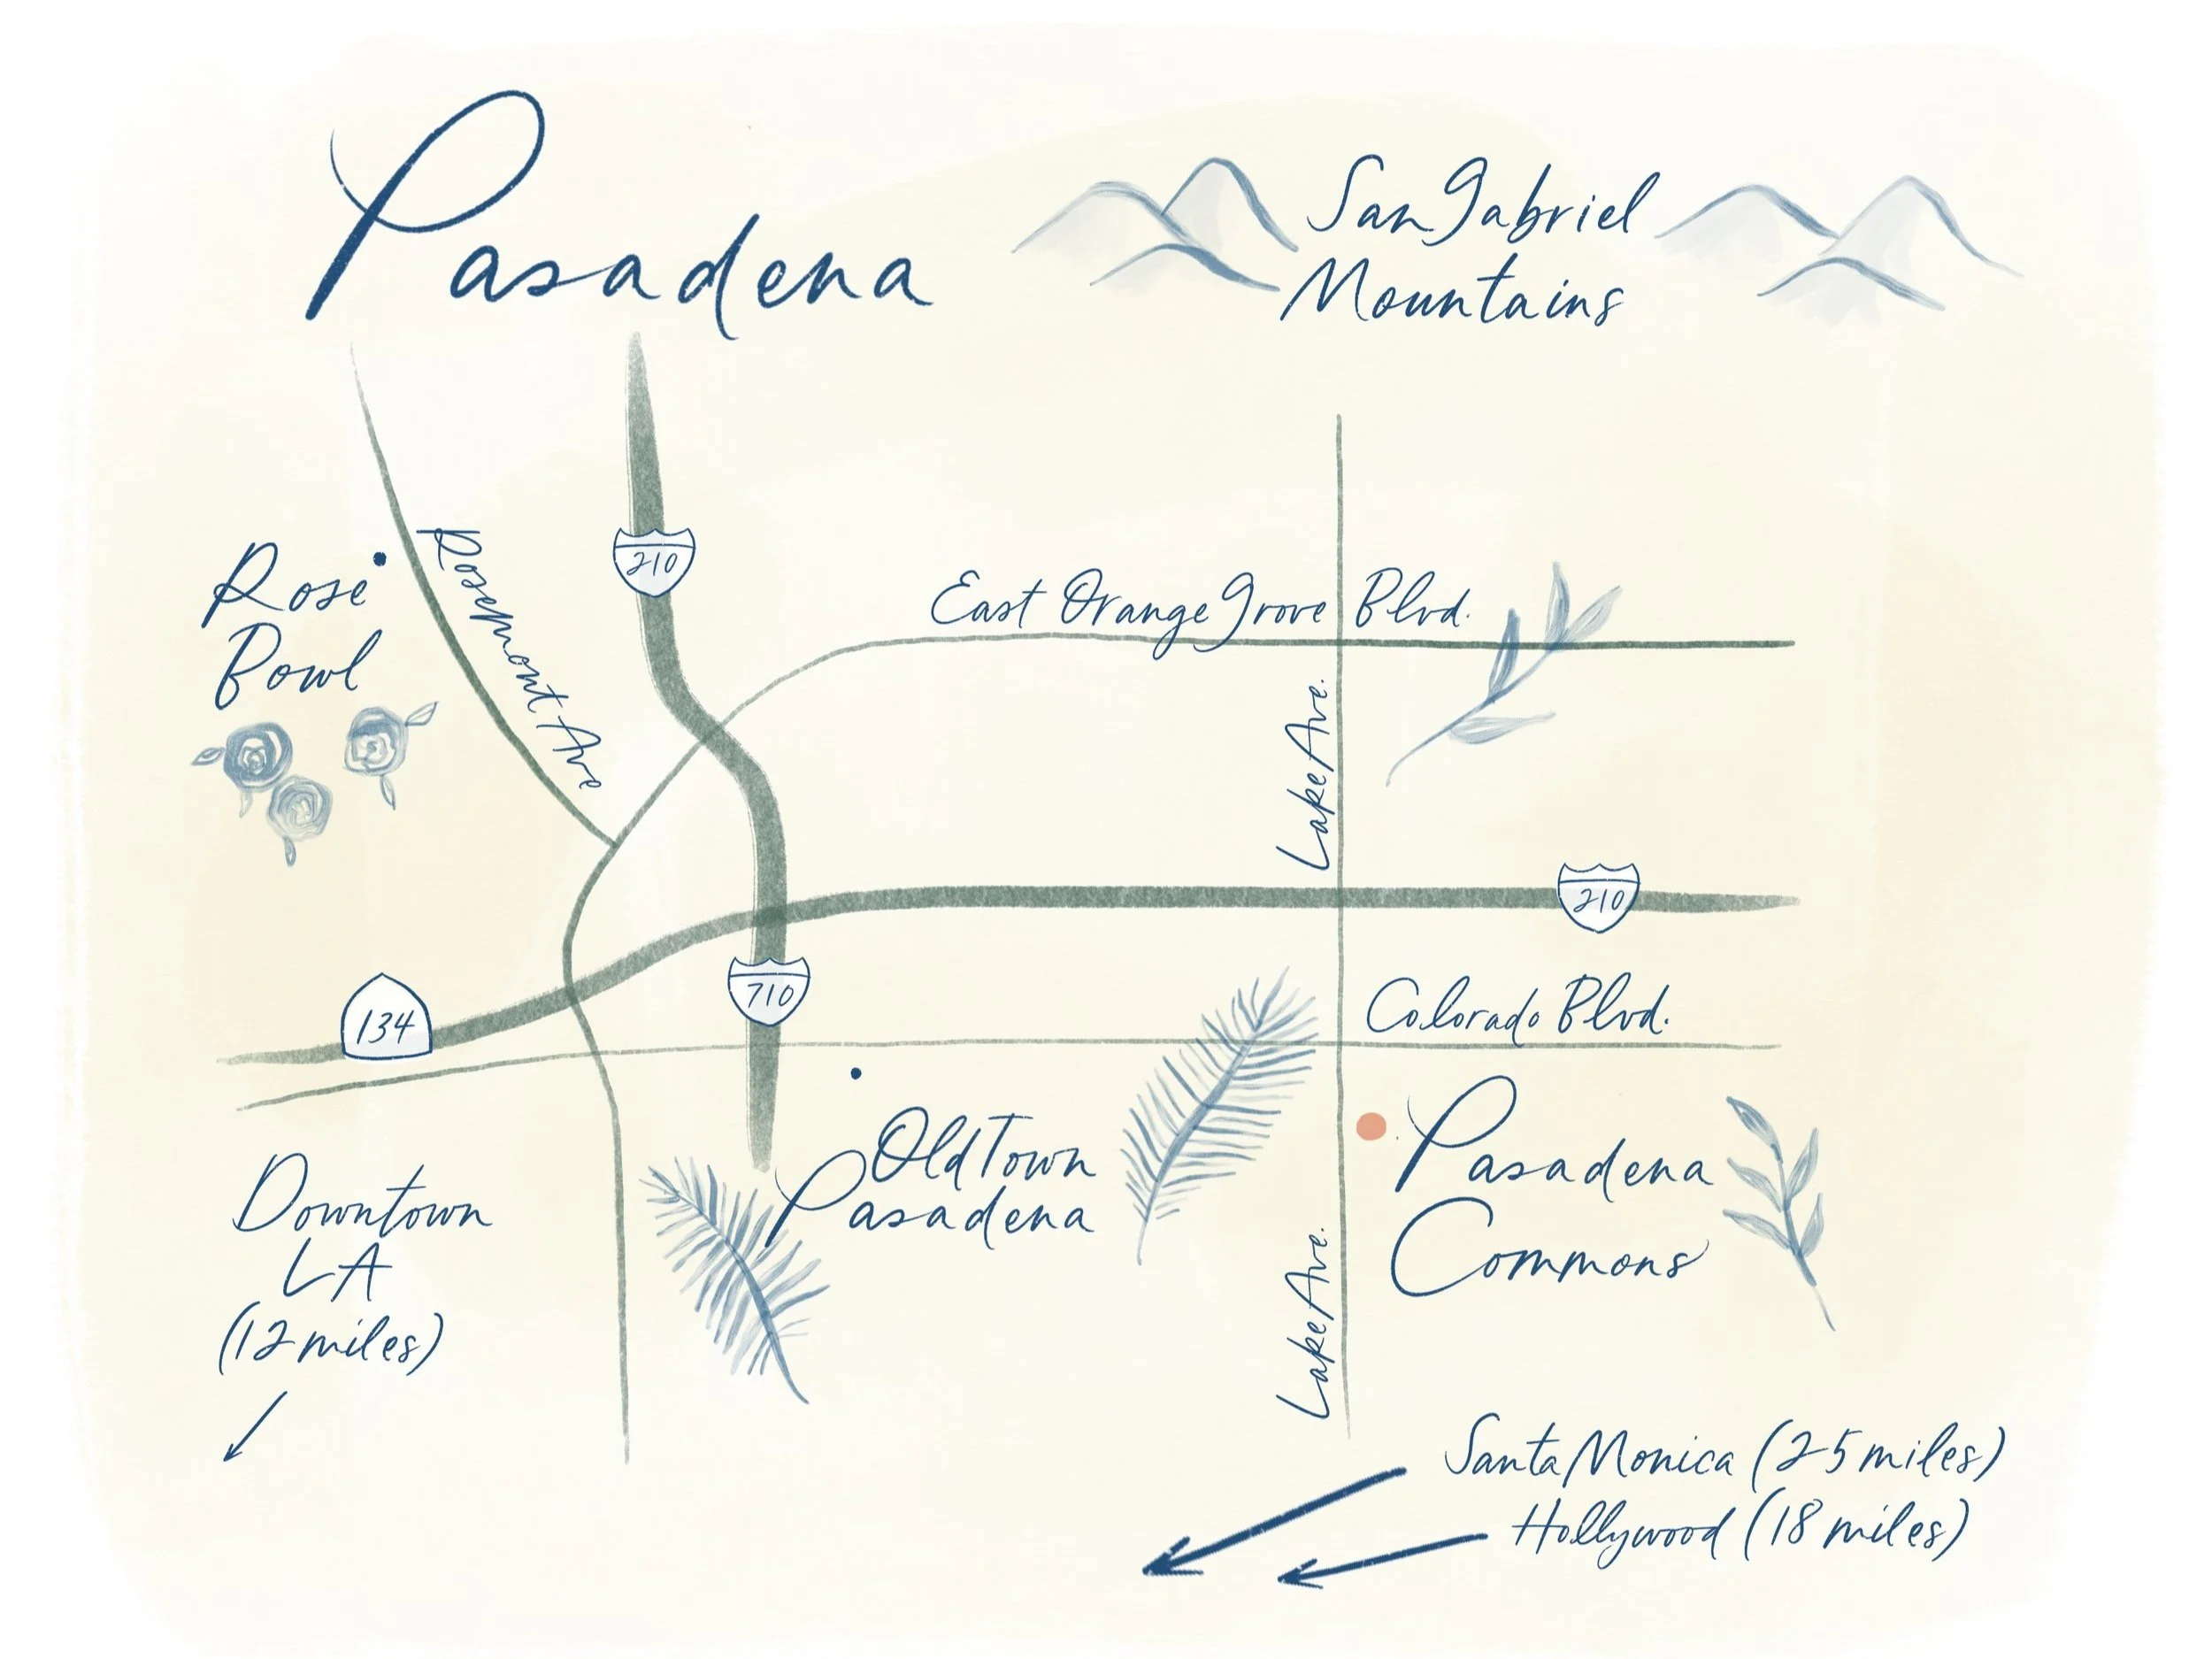 Pasadena
San Gabriel
Mountains
210
Rosemont Ave
Rose
Bowl
East Orange Grove Blvd.
Lake Ave.
210
134
710
Colorado Blvd.
Old Town
Pasadena
Pasadena
Commons
Downtown
LA
(12 miles)
Lake Ave.
Santa Monica (25 miles)
Hollywood (18 miles)